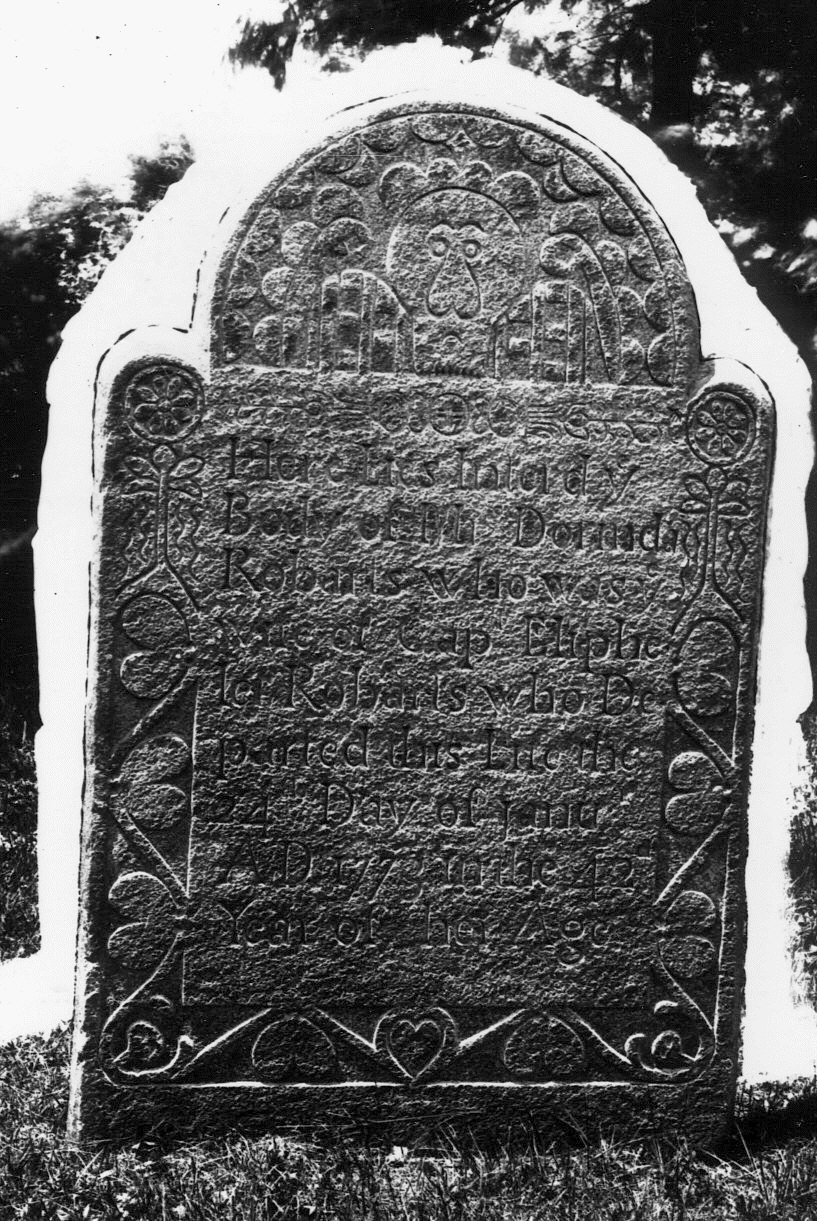 Here Lies Interd y
Body of Mrs Dorradi
Robarts who was y
wife of Capt Eliphe
let Robarts who De
parted this Life the
24th Day of janu
A D 1773 in the 42d
Year of her Age